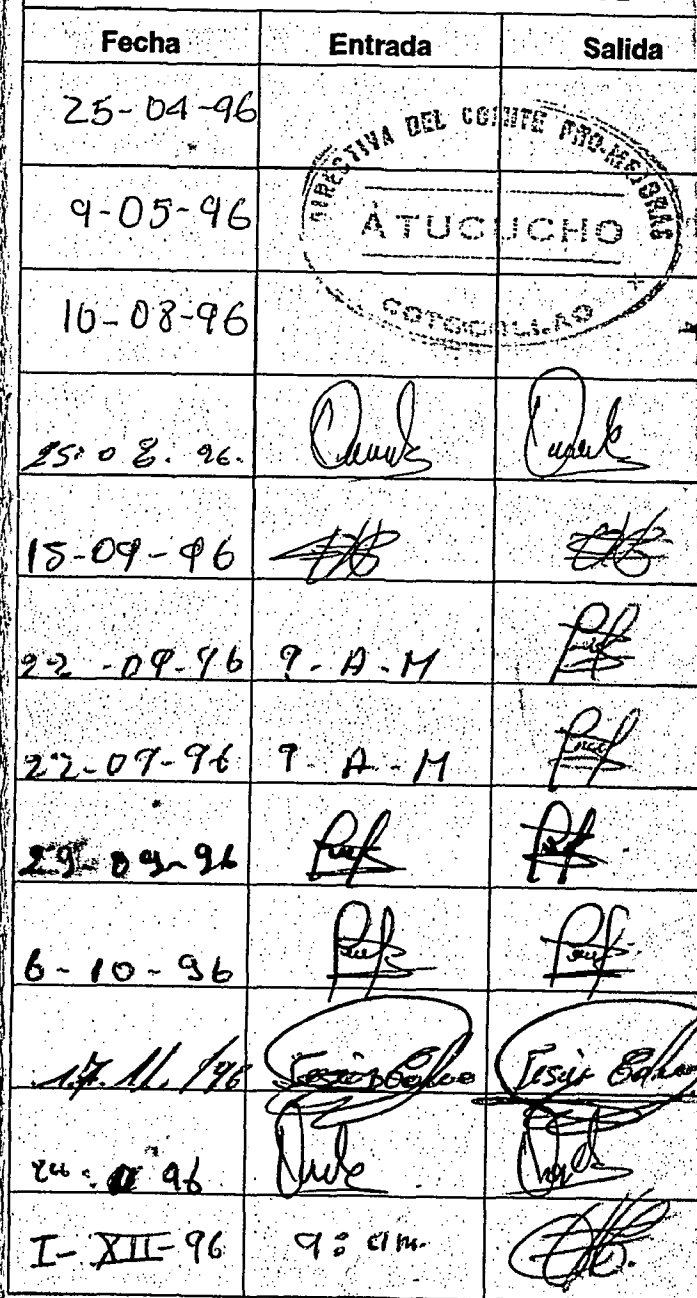 Fecha Entrada Salida
25-04-96
DIRECTIVA DEL COMITE PRO-MEJORAS
9-05-96
ATUCUCHO
10-08-96
COTOCOLLAO
25.08.96.
15-09-96
22-09-96 9-A-M
22-09-96 9-A-M
29-09-96
6-10-96
17.11./96 Jesús Jesús
96
I-XII-96 9:am.